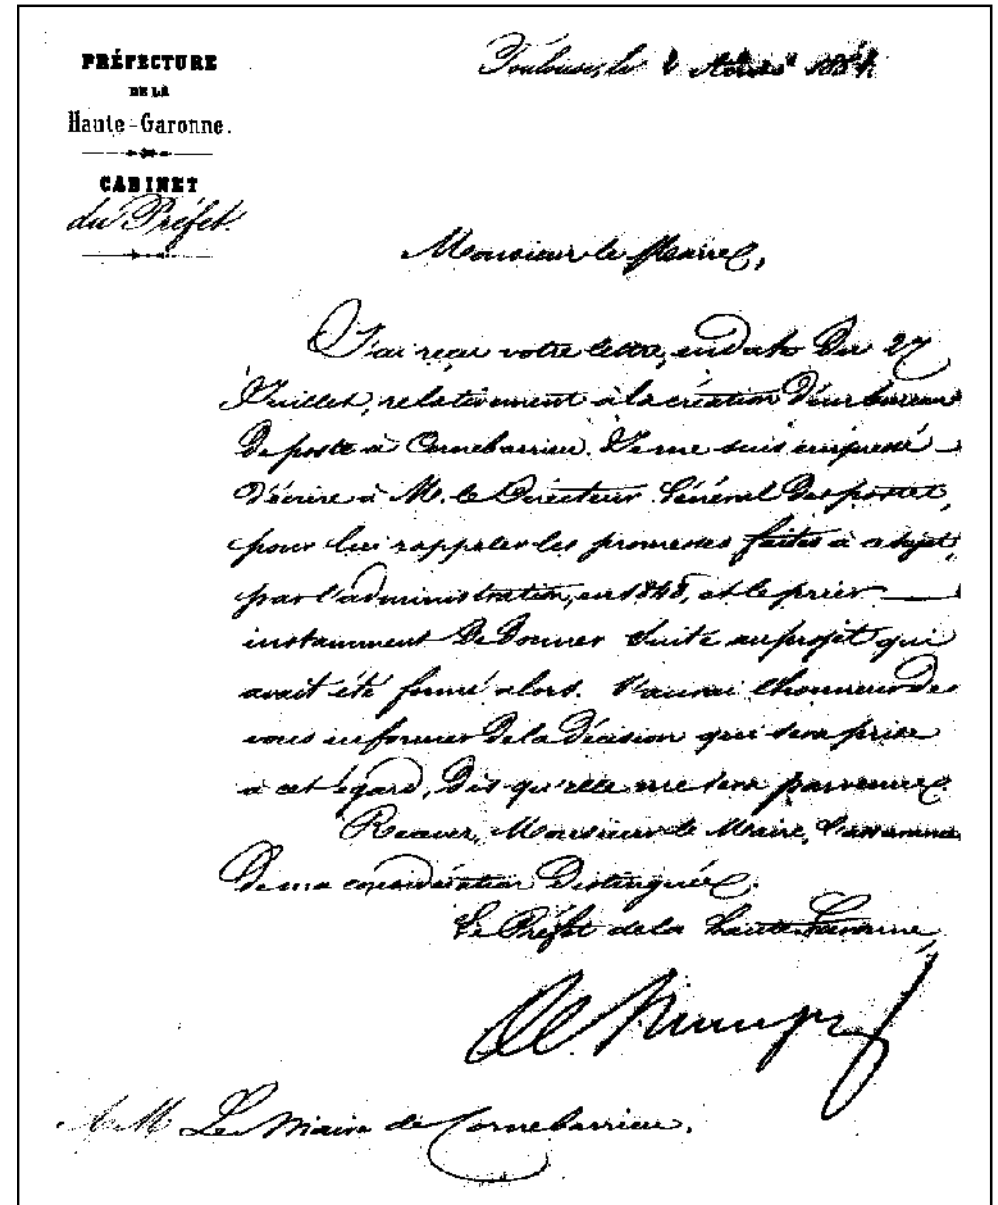 PRÉFECTURE
DE LA
Haute-Garonne.
CABINET
du Préfet.
Toulouse, le 2 Août 1854
Monsieur le Maire,
J'ai reçu votre lettre, en date du 27
Juillet, relativement à la création d'un bureau
de poste à Cornebarrieu. Je me suis empressé
d'écrire à M. le Directeur Général des postes,
pour lui rappeler les promesses faites à ce sujet,
par l'administration, en 1848, et le prier
instamment de donner suite au projet qui
avait été formé alors. J'aurai l'honneur de
vous informer de la décision qui sera prise
à cet égard, dès qu'elle me sera parvenue.
Recevez, Monsieur le Maire, l'assurance
de ma considération distinguée.
Le Préfet de la Haute-Garonne,
A M Le Maire de Cornebarrieu.